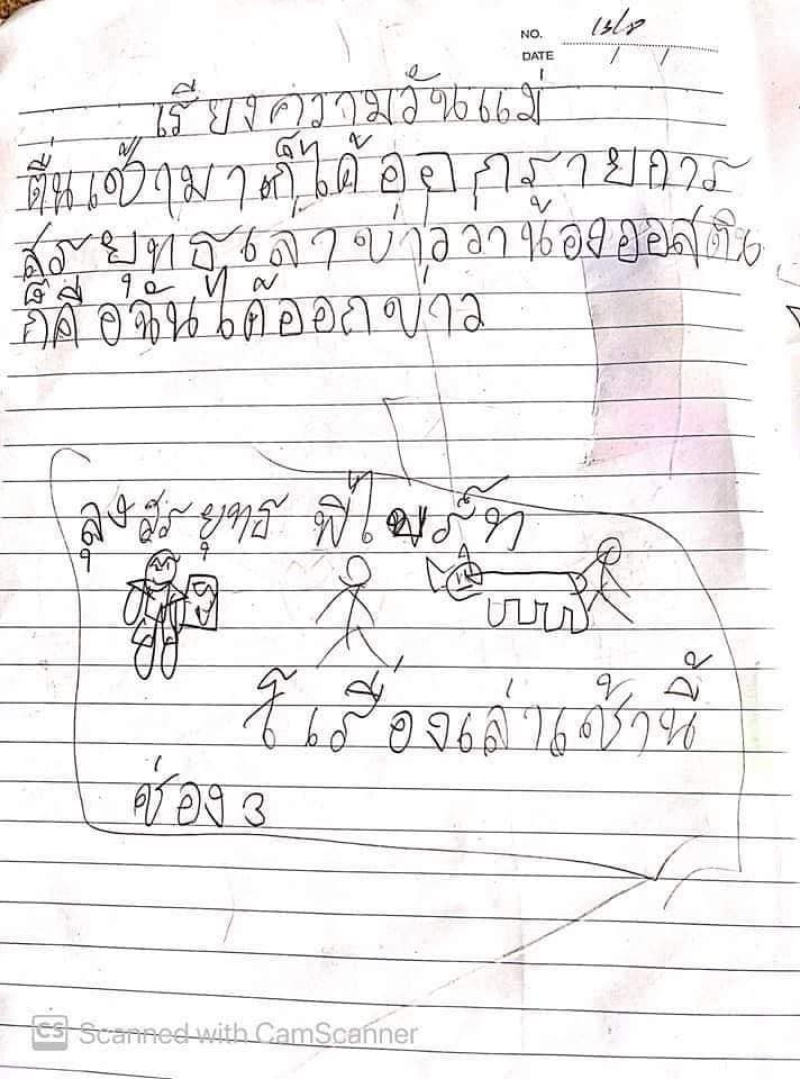 NO. 13/8
DATE / /
เรียงความวันแม่
ตื่นเช้ามาก็ได้ออกรายการ
สรยุทธเลาข่าววาน้องออสติน
ก็คือฉันได้ออกข่าว
ลุงสรยุทธ พี่ไบรัท
โต๊
เรื่องเล่าเช้านี้
ช่อง 3
CS Scanned with CamScanner